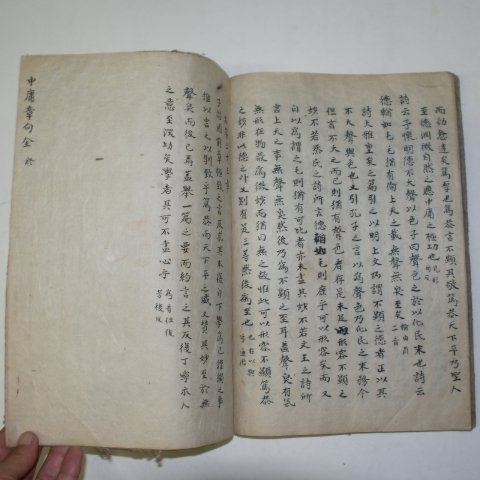 而効愈遠矣篤厚也篤恭言不顯其敬篤恭天下平乃聖人
至德淵微自然之應中庸之極功也
詩云予懷明德不大聲以色子曰聲色之於以化民末也詩云
德輶如毛毛猶有倫上天之載無聲無臭至矣
詩大雅皇矣之篇引之以明上文所謂不顯之德者正以其
不大聲與色也又引孔子之言以爲聲色乃化民之末務今
但言不大之而已則猶有聲色者存是未足以形容不顯之
妙不若烝民之詩所言德輶如毛則庶乎可以形容矣而又
自以爲謂之毛則猶有可比者亦未盡其妙不若文王之詩所
言上天之事無聲無臭然後乃爲不顯之至耳蓋聲臭有氣
無形在物最爲微妙而猶曰無之故惟此可以形容不顯篤恭
之妙非此德之外又別有是三等然後爲至也
右第三十三章
子思因前章極致之言反求其本復自下學爲己謹獨之事
推以言之以馴致乎篤恭而天下平之盛又賛其妙至於無
聲臭而後已焉蓋舉一篇之要而約言之其反復丁寧示人
之意至深切矣學者其可不盡心乎
中庸章句全 終